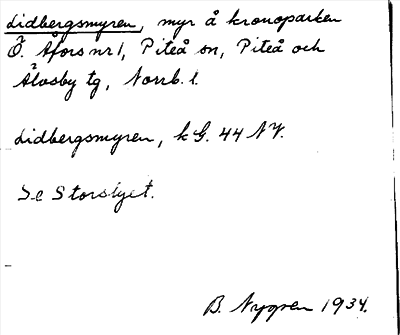 Lidbergsmyren, myr å kronoparken
Ö. Åfors nr 1, Piteå sn, Piteå och
Älvsby tg, Norrb. l.
Lidbergsmyren, k G. 44 NV.
Se Storslyet.
B. Nygren 1934.